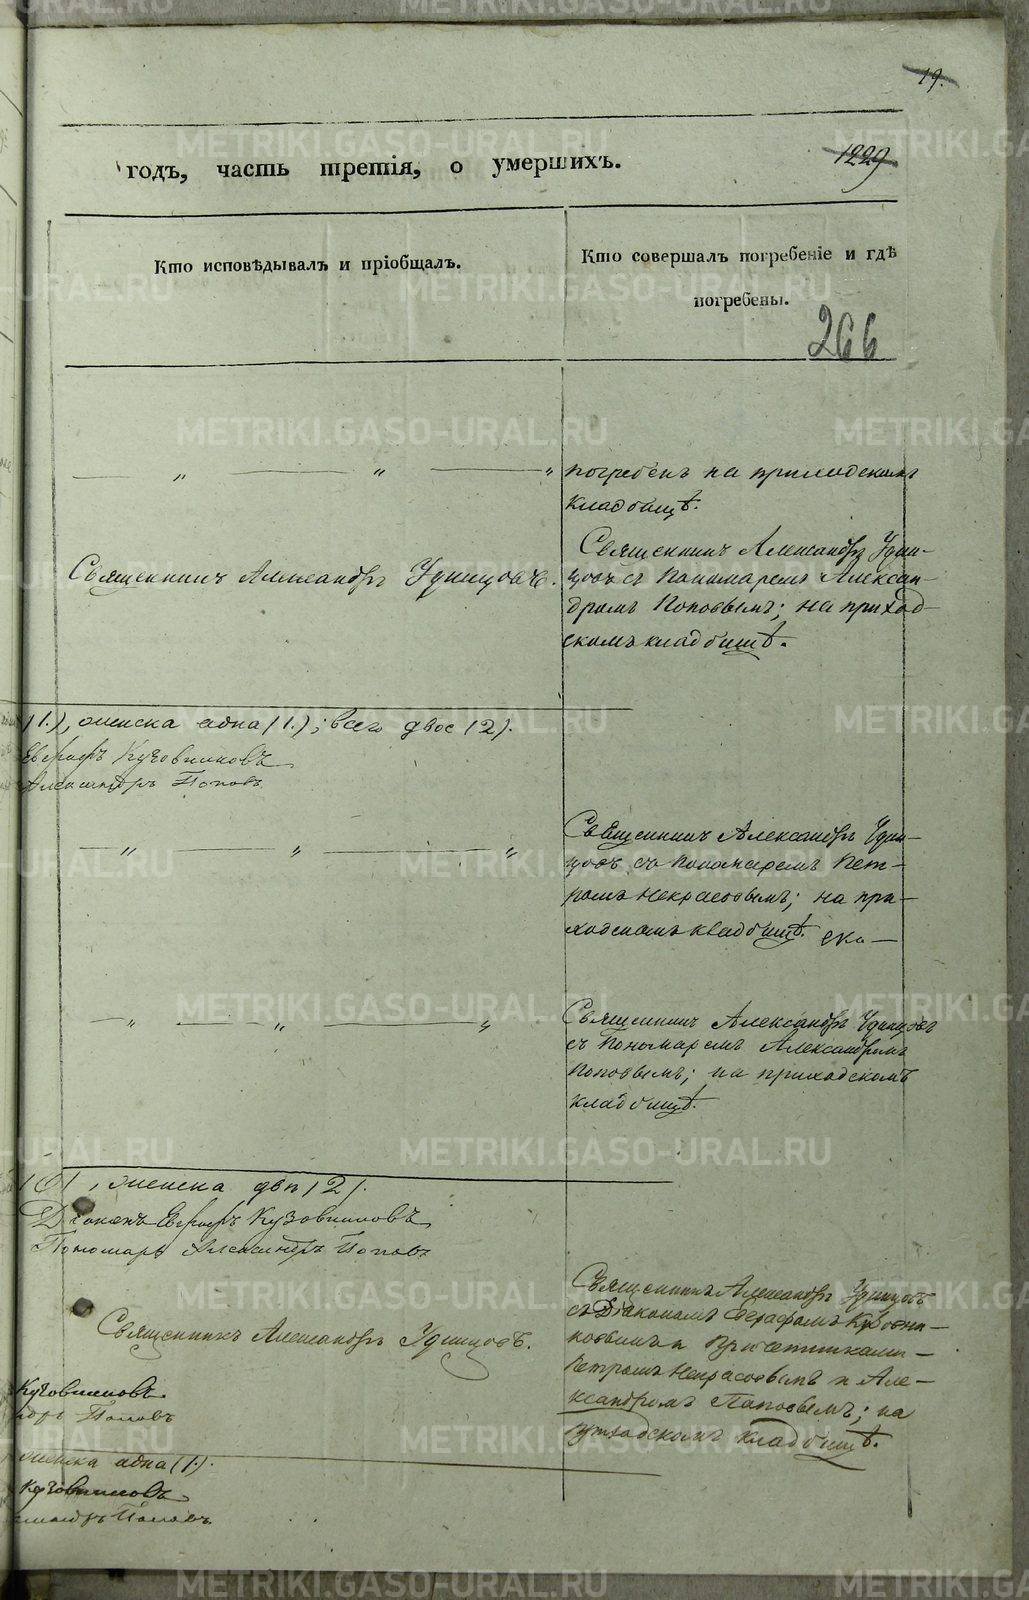 19.
1229
годъ, часть третія, о умершихъ.
Кто исповѣдывалъ и пріобщалъ.
Кто совершалъ погребеніе и гдѣ
погребены.
266
— „ — „ — „
погребенъ на приходскомъ
кладбищѣ.
Священникъ Александръ Удинцовъ.
Священникъ Александръ Удин-
цовъ съ Пономаремъ Алексан-
дромъ Поповымъ; на приход-
скомъ кладбищѣ.
(1.), женска одна (1.); всего двое (2).
Евграфъ Кузовниковъ
Александръ Поповъ
— „ — „ — „
Священникъ Александръ Удин-
цовъ съ Пономаремъ Пет-
ромъ Некрасовымъ; на при-
ходскомъ кладбищѣ. ско-
— „ — „ — „
Священникъ Александръ Удинцовъ
съ Пономаремъ Александромъ
Поповымъ; на приходскомъ
кладбищѣ.
(0), женска двѣ (2).
Діаконъ Евграфъ Кузовниковъ
Пономарь Александръ Поповъ
Священникъ Александръ Удинцовъ.
Священникъ Александръ Удинцовъ
съ Діакономъ Евграфомъ Кузовни-
ковымъ и Причетниками-
Петромъ Некрасовымъ и Але-
ксандромъ Поповымъ; на
приходскомъ кладбищѣ.
Кузовниковъ.
ндръ Поповъ
женска одна (1.).
Кузовниковъ
ксандръ Поповъ.
METRIKI.GASO-URAL.RU